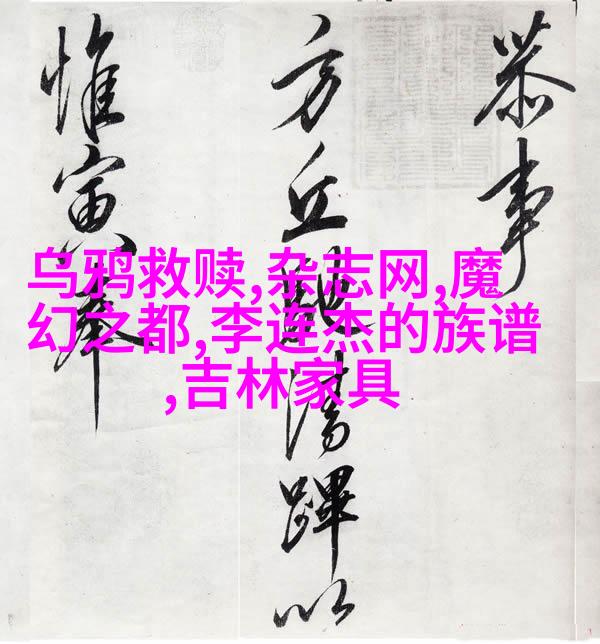 恭事
方丘清蹕以
惟寅奉
乌鸦救赎,杂志网,魔
幻之都,李连杰的族谱
,吉林家具